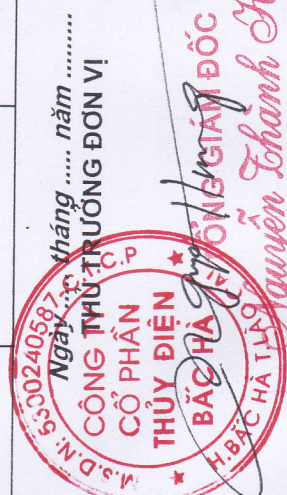 Ngày ..... tháng ..... năm ..........
THỦ TRƯỞNG ĐƠN VỊ
M.S.D.N: 5300240587 C.T.C.P
CÔNG TY
CỔ PHẦN
THỦY ĐIỆN
BẮC HÀ
H.BẮC HÀ T.LÀO CAI
TỔNG GIÁM ĐỐC
Nguyễn Thành